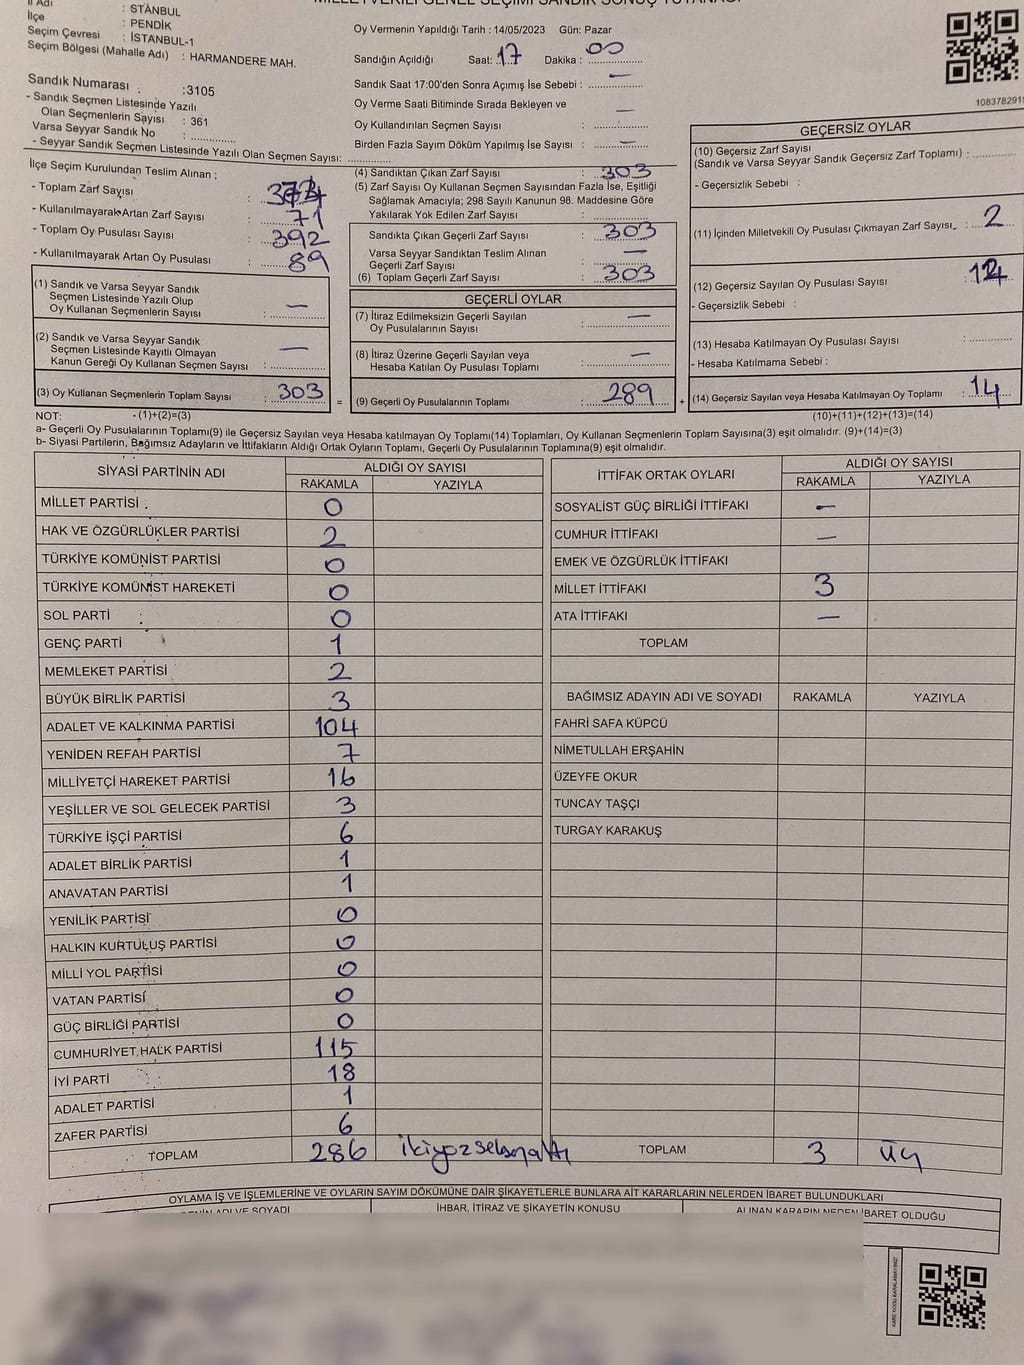 İl Adı : STANBUL
İlçe : PENDİK
Seçim Çevresi : İSTANBUL-1
Seçim Bölgesi (Mahalle Adı) : HARMANDERE MAH.
Sandık Numarası : :3105
- Sandık Seçmen Listesinde Yazılı
Olan Seçmenlerin Sayısı : 361
Varsa Seyyar Sandık No :
- Seyyar Sandık Seçmen Listesinde Yazılı Olan Seçmen Sayısı:
Oy Vermenin Yapıldığı Tarih : 14/05/2023 Gün: Pazar
Sandığın Açıldığı Saat: 17 Dakika : 00
Sandık Saat 17:00'den Sonra Açımış İse Sebebi : —
Oy Verme Saati Bitiminde Sırada Bekleyen ve
Oy Kullandırılan Seçmen Sayısı : —
Birden Fazla Sayım Döküm Yapılmış İse Sayısı : —
1083782915
İlçe Seçim Kurulundan Teslim Alınan ;
- Toplam Zarf Sayısı :
- Kullanılmayarak Artan Zarf Sayısı : 71
- Toplam Oy Pusulası Sayısı : 392
- Kullanılmayarak Artan Oy Pusulası : 89
(1) Sandık ve Varsa Seyyar Sandık
Seçmen Listesinde Yazılı Olup
Oy Kullanan Seçmenlerin Sayısı : —
(2) Sandık ve Varsa Seyyar Sandık
Seçmen Listesinde Kayıtlı Olmayan
Kanun Gereği Oy Kullanan Seçmen Sayısı : —
(3) Oy Kullanan Seçmenlerin Toplam Sayısı : 303 =
(4) Sandıktan Çıkan Zarf Sayısı : 303
(5) Zarf Sayısı Oy Kullanan Seçmen Sayısından Fazla İse, Eşitliği
Sağlamak Amacıyla; 298 Sayılı Kanunun 98. Maddesine Göre
Yakılarak Yok Edilen Zarf Sayısı :
Sandıkta Çıkan Geçerli Zarf Sayısı : 303
Varsa Seyyar Sandıktan Teslim Alınan
Geçerli Zarf Sayısı : —
(6) Toplam Geçerli Zarf Sayısı : 303
GEÇERLİ OYLAR
(7) İtiraz Edilmeksizin Geçerli Sayılan
Oy Pusulalarının Sayısı : —
(8) İtiraz Üzerine Geçerli Sayılan veya
Hesaba Katılan Oy Pusulası Toplamı : —
(9) Geçerli Oy Pusulalarının Toplamı : 289 +
GEÇERSİZ OYLAR
(10) Geçersiz Zarf Sayısı
(Sandık ve Varsa Seyyar Sandık Geçersiz Zarf Toplamı) :
- Geçersizlik Sebebi :
(11) İçinden Milletvekili Oy Pusulası Çıkmayan Zarf Sayısı : 2
(12) Geçersiz Sayılan Oy Pusulası Sayısı : 12
- Geçersizlik Sebebi :
(13) Hesaba Katılmayan Oy Pusulası Sayısı :
- Hesaba Katılmama Sebebi :
(14) Geçersiz Sayılan veya Hesaba Katılmayan Oy Toplamı : 14
NOT: - (1)+(2)=(3) (10)+(11)+(12)+(13)=(14)
a- Geçerli Oy Pusulalarının Toplamı(9) ile Geçersiz Sayılan veya Hesaba katılmayan Oy Toplamı(14) Toplamları, Oy Kullanan Seçmenlerin Toplam Sayısına(3) eşit olmalıdır. (9)+(14)=(3)
b- Siyasi Partilerin, Bağımsız Adayların ve İttifakların Aldığı Ortak Oyların Toplamı, Geçerli Oy Pusulalarının Toplamına(9) eşit olmalıdır.
SİYASİ PARTİNİN ADI ALDIĞI OY SAYISI
RAKAMLA YAZIYLA
MİLLET PARTİSİ 0
HAK VE ÖZGÜRLÜKLER PARTİSİ 2
TÜRKİYE KOMÜNİST PARTİSİ 0
TÜRKİYE KOMÜNİST HAREKETİ 0
SOL PARTİ 0
GENÇ PARTİ 1
MEMLEKET PARTİSİ 2
BÜYÜK BİRLİK PARTİSİ 3
ADALET VE KALKINMA PARTİSİ 104
YENİDEN REFAH PARTİSİ 7
MİLLİYETÇİ HAREKET PARTİSİ 16
YEŞİLLER VE SOL GELECEK PARTİSİ 3
TÜRKİYE İŞÇİ PARTİSİ 6
ADALET BİRLİK PARTİSİ 1
ANAVATAN PARTİSİ 1
YENİLİK PARTİSİ 0
HALKIN KURTULUŞ PARTİSİ 0
MİLLİ YOL PARTİSİ 0
VATAN PARTİSİ 0
GÜÇ BİRLİĞİ PARTİSİ 0
CUMHURİYET HALK PARTİSİ 115
İYİ PARTİ 18
ADALET PARTİSİ 1
ZAFER PARTİSİ 6
TOPLAM 286 ikiyüzseksenaltı
İTTİFAK ORTAK OYLARI ALDIĞI OY SAYISI
RAKAMLA YAZIYLA
SOSYALİST GÜÇ BİRLİĞİ İTTİFAKI —
CUMHUR İTTİFAKI —
EMEK VE ÖZGÜRLÜK İTTİFAKI
MİLLET İTTİFAKI 3
ATA İTTİFAKI —
TOPLAM
BAĞIMSIZ ADAYIN ADI VE SOYADI RAKAMLA YAZIYLA
FAHRİ SAFA KÜPCÜ
NİMETULLAH ERŞAHİN
ÜZEYFE OKUR
TUNCAY TAŞÇI
TURGAY KARAKUŞ
TOPLAM 3 üç
OYLAMA İŞ VE İŞLEMLERİNE VE OYLARIN SAYIM DÖKÜMÜNE DAİR ŞİKAYETLERLE BUNLARA AİT KARARLARIN NELERDEN İBARET BULUNDUKLARI
ADI VE SOYADI İHBAR, İTİRAZ VE ŞİKAYETİN KONUSU ALINAN KARARIN NEDEN İBARET OLDUĞU